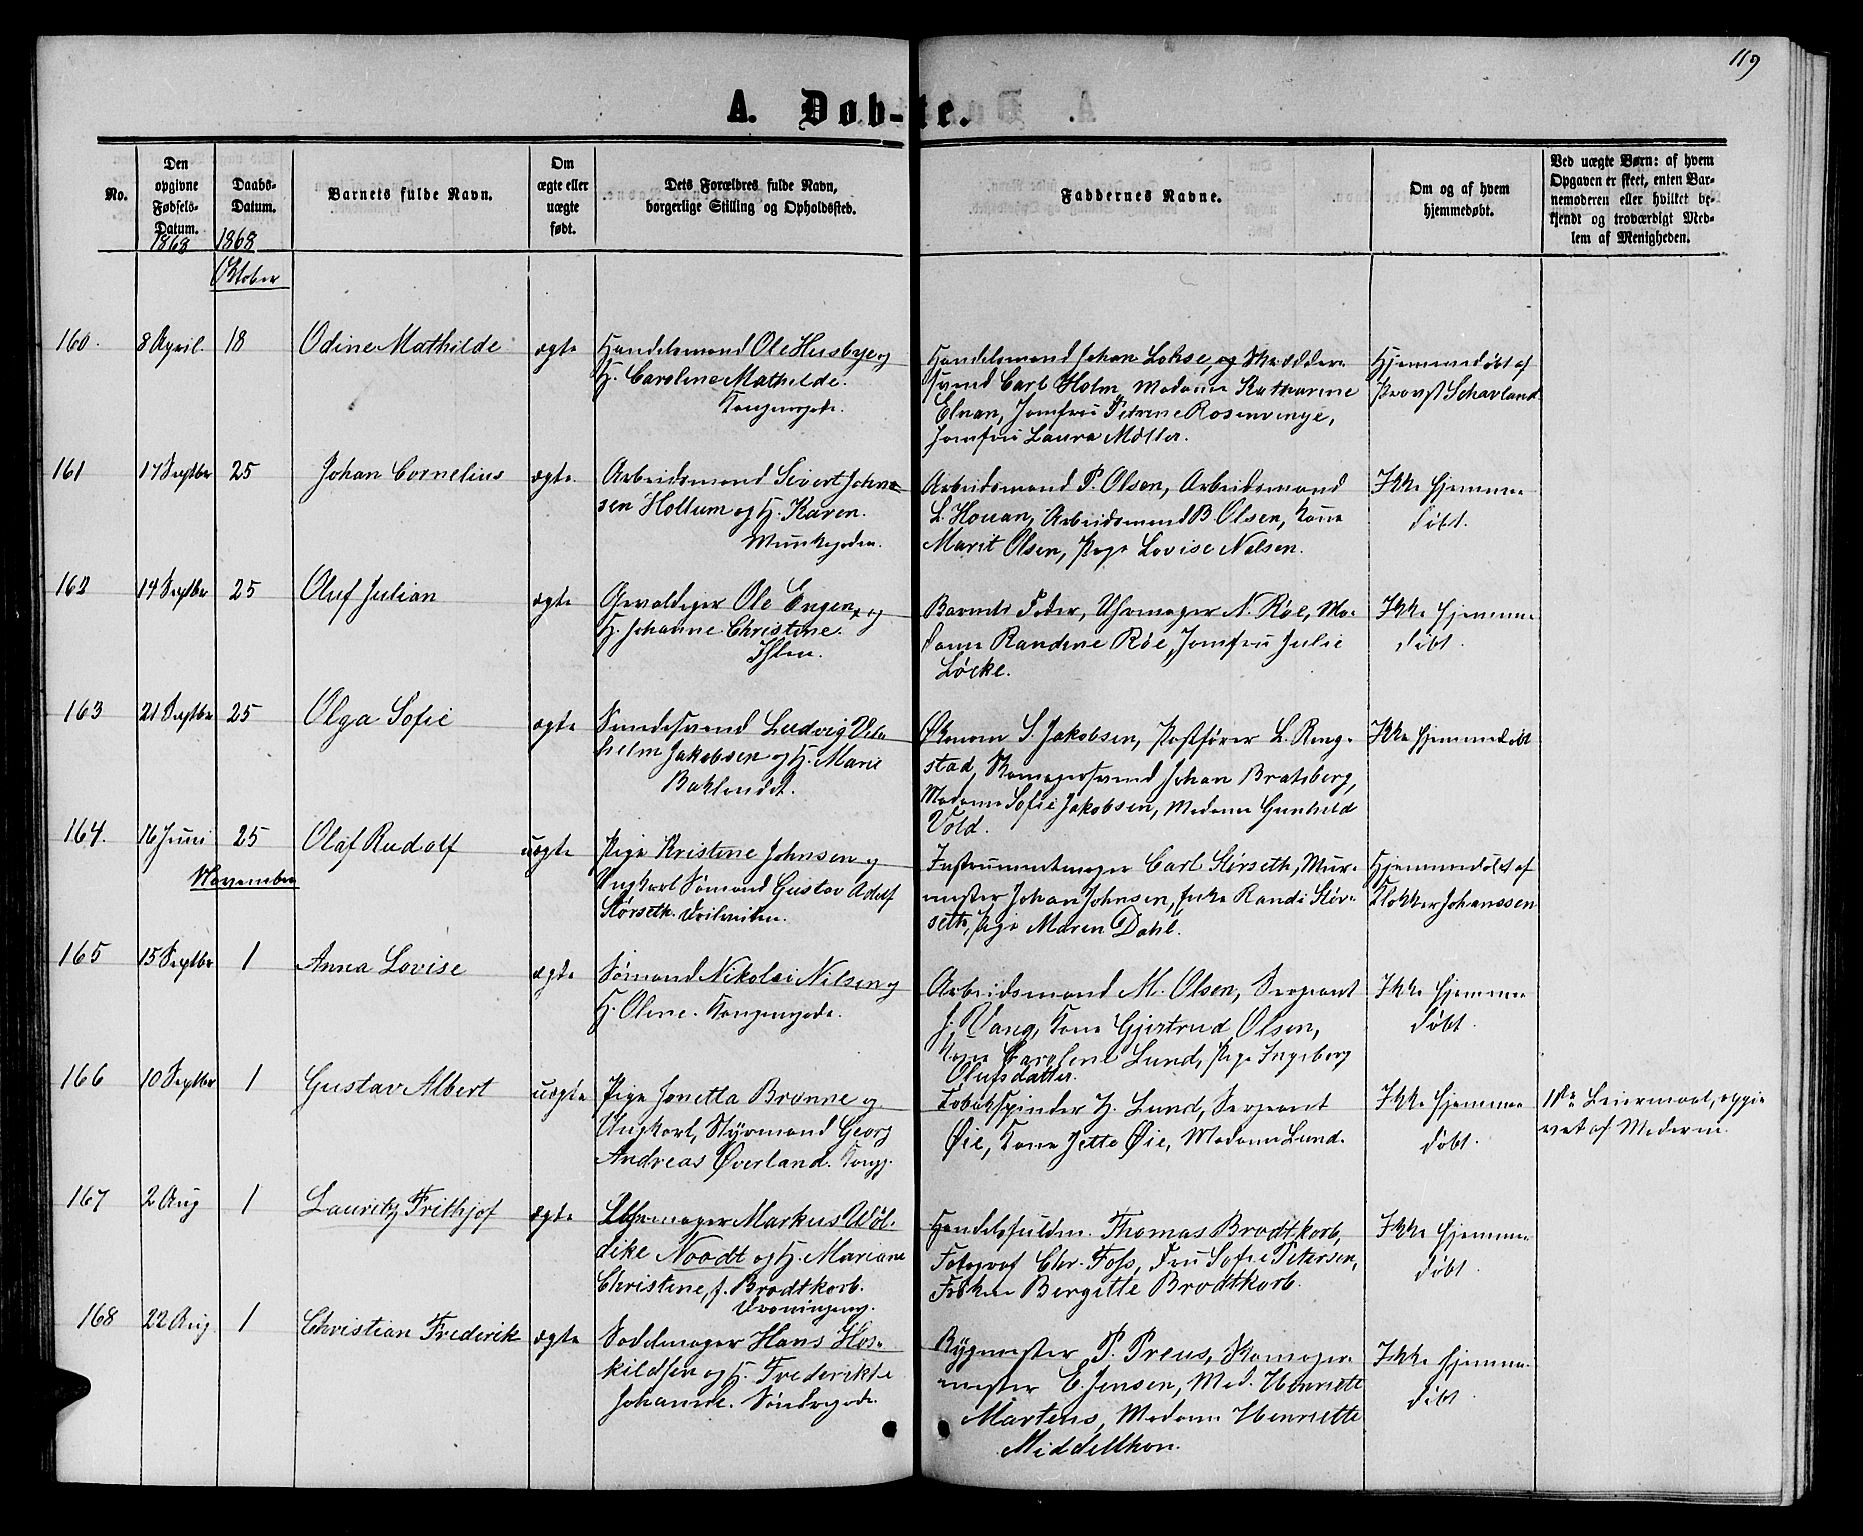 119
A. Døb-te.
No.
Den
opgivne
Fødsels-
Datum.
1868
Daabs-
Datum.
1868
Barnets fulde Navn.
Om
ægte eller
uægte
født.
Dets Forældres fulde Navn,
borgerlige Stilling og Opholdssted.
Faddernes Navne.
Om og af hvem
hjemmedøbt.
Ved uægte Børn: af hvem
Opgaven er skeet, enten Bar-
nemoderen eller hvilket be-
kjendt og troværdigt Med-
lem af Menigheden.
Oktober
160. 8 April. 18 Odine Mathilde ægte
Handelsmand Ole Husbye og
H. Caroline Mathilde.
Kongensgade.
Handelsmand Johan Lohse, og Skrædder-
svend Carl Holm, Madame Katharine
Elvan, Jomfru Petrine Rosenvinge,
Jomfru Laura Møller.
Hjemmedøbt af
Provst Schavland
161 17 Septbr 25 Johan Cornelius ægte.
Arbeidsmand Sivert John-
sen Hollum og H. Karen.
Munkegaden.
Arbeidsmand P. Olsen, Arbeidsmand
L. Houan, Arbeidsmand B. Olsen, Kone
Marit Olsen, Pige Lovise Nelsen.
Ikke hjemme
døbt.
162 14 Septbr 25 Oluf Julian ægte
Gevaldiger Ole Engen, og
H. Johanne Christine.
Ihlen.
Barnets Fader, Uhrmager N. Røe, Ma-
dame Randine Røe, Jomfru Julie
Løcke.
Ikke hjemme
døbt.
163 21 Septbr 25 Olga Sofie ægte
Smedesvend Ludvig Vil-
helm Jakobsen og H. Marie
Baklandet.
Økonom S. Jakobsen, Postfører L. Reng-
stad, Skomagersvend Johan Bratsberg,
Madame Sofie Jakobsen, Madame Gunhild
Vold.
Ikke hjemmedøbt
164. 16 Juni 25 Olaf Rudolf uægte
Pige Kristine Johnsen og
Ungkarl Sømand Gustav Adolf
Størseth. Voldveiten.
Instrumentmager Carl Størseth, Mur-
mester Johan Johnsen, Enke Randi Stør-
seth, Pige Maren Dahl.
Hjemmedøbt af
Klokker Johanssen
November
165 15 Septbr 1 Anna Lovise ægte
Sømand Nikolai Nilsen og
H. Oline. Kongensgade.
Arbeidsmand M. Olsen, Sergeant
J. Vang, Kone Gjertrud Olsen,
Kone Caroline Lund, Pige Ingeborg
Olufsdatter.
Ikke hjemme
døbt.
166 10 Septbr 1 Gustav Albert uægte
Pige Jonetta Brønne og
Ungkarl, Styrmand Georg
Andreas Øverland. Kongg.
Tobakspinder H. Lund, Sergeant
Øie, Kone Jette Øie, Madame Lund.
Ikke hjemme
døbt.
1ste Leiermaal, opgi-
vet af Moderen.
167 2 Aug 1 Lauritz Frithjof ægte
Uhrmager Markus Wøl-
dike Noodt og H. Mariane
Christine, f. Brodtkorb.
Dronningensg.
Handelsfuldm. Thomas Brodtkorb,
Fotograf Chr. Foss, Fru Sofie Petersen,
Frøken Bergitte Brodtkorb.
Ikke hjemme
døbt.
168 22 Aug 1 Christian Frederik ægte
Sadelmager Hans Hos-
kildsen og H. Frederikke
Johanne. Søndregade.
Bygmester P. Preus, Skomager-
mester E. Jensen, Mad. Henriette
Martens, Madame Henriette
Middelthon.
Ikke hjemme
døbt.